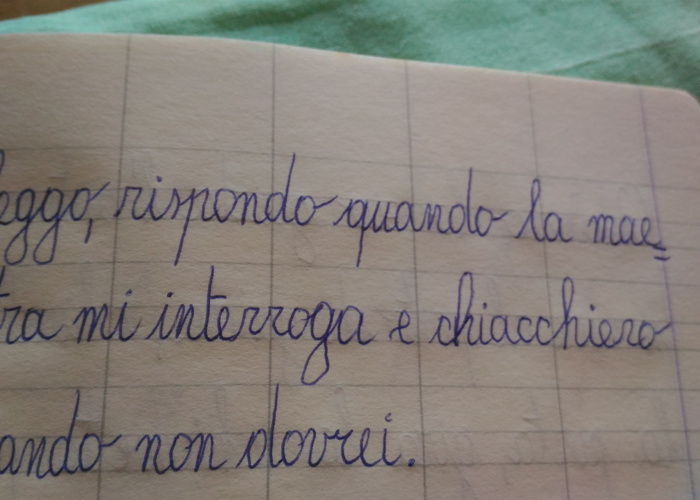 eggo, rispondo quando la mae=
tra mi interroga e chiacchiero
ando non dovrei.